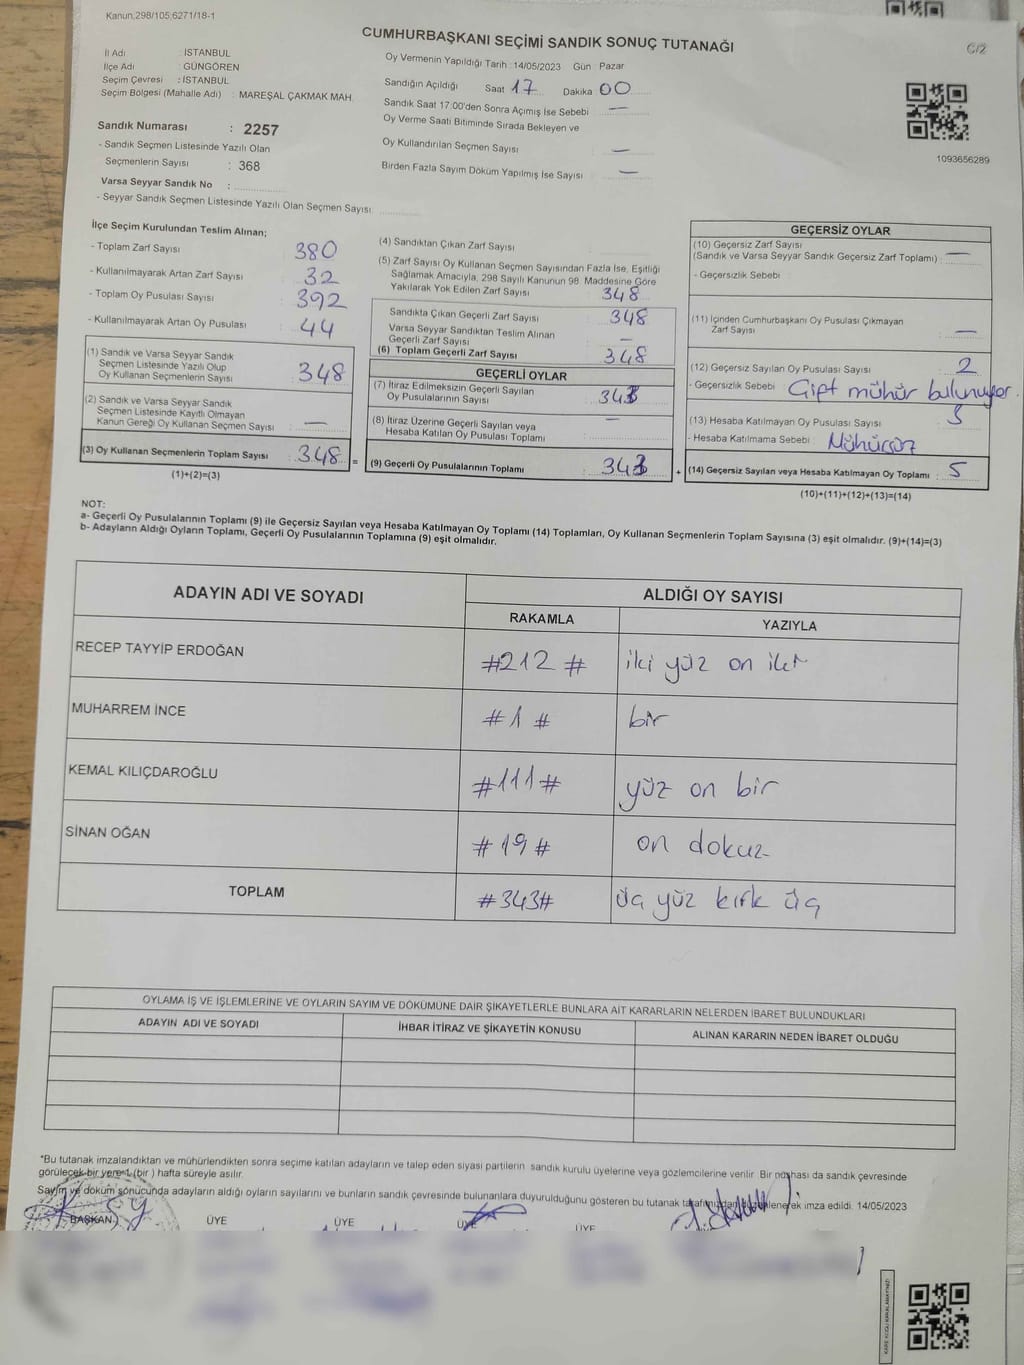 Kanun,298/105,6271/18-1
CUMHURBAŞKANI SEÇİMİ SANDIK SONUÇ TUTANAĞI
C/2
İl Adı : İSTANBUL
İlçe Adı : GÜNGÖREN
Seçim Çevresi : İSTANBUL
Seçim Bölgesi (Mahalle Adı) : MAREŞAL ÇAKMAK MAH.
Sandık Numarası : 2257
- Sandık Seçmen Listesinde Yazılı Olan
Seçmenlerin Sayısı : 368
Varsa Seyyar Sandık No :
- Seyyar Sandık Seçmen Listesinde Yazılı Olan Seçmen Sayısı
Oy Vermenin Yapıldığı Tarih : 14/05/2023 Gün : Pazar
Sandığın Açıldığı Saat 17 Dakika 00
Sandık Saat 17:00'den Sonra Açımış İse Sebebi —
Oy Verme Saati Bitiminde Sırada Bekleyen ve
Oy Kullandırılan Seçmen Sayısı —
Birden Fazla Sayım Döküm Yapılmış İse Sayısı —
1093656289
İlçe Seçim Kurulundan Teslim Alınan;
- Toplam Zarf Sayısı : 380
- Kullanılmayarak Artan Zarf Sayısı : 32
- Toplam Oy Pusulası Sayısı : 392
- Kullanılmayarak Artan Oy Pusulası : 44
(1) Sandık ve Varsa Seyyar Sandık
Seçmen Listesinde Yazılı Olup
Oy Kullanan Seçmenlerin Sayısı : 348
(2) Sandık ve Varsa Seyyar Sandık
Seçmen Listesinde Kayıtlı Olmayan
Kanun Gereği Oy Kullanan Seçmen Sayısı : —
(3) Oy Kullanan Seçmenlerin Toplam Sayısı : 348 =
(1)+(2)=(3)
(4) Sandıktan Çıkan Zarf Sayısı
(5) Zarf Sayısı Oy Kullanan Seçmen Sayısından Fazla İse, Eşitliği
Sağlamak Amacıyla, 298 Sayılı Kanunun 98. Maddesine Göre
Yakılarak Yok Edilen Zarf Sayısı 348
Sandıkta Çıkan Geçerli Zarf Sayısı : 348
Varsa Seyyar Sandıktan Teslim Alınan
Geçerli Zarf Sayısı : —
(6) Toplam Geçerli Zarf Sayısı : 348
GEÇERLİ OYLAR
(7) İtiraz Edilmeksizin Geçerli Sayılan
Oy Pusulalarının Sayısı : 343
(8) İtiraz Üzerine Geçerli Sayılan veya
Hesaba Katılan Oy Pusulası Toplamı : —
(9) Geçerli Oy Pusulalarının Toplamı : 343 +
GEÇERSİZ OYLAR
(10) Geçersiz Zarf Sayısı
(Sandık ve Varsa Seyyar Sandık Geçersiz Zarf Toplamı) : —
- Geçersizlik Sebebi :
(11) İçinden Cumhurbaşkanı Oy Pusulası Çıkmayan
Zarf Sayısı : —
(12) Geçersiz Sayılan Oy Pusulası Sayısı : 2
- Geçersizlik Sebebi : Çift mühür bulunuyor.
(13) Hesaba Katılmayan Oy Pusulası Sayısı : 3
- Hesaba Katılmama Sebebi : Mühürsüz
(14) Geçersiz Sayılan veya Hesaba Katılmayan Oy Toplamı : 5
(10)+(11)+(12)+(13)=(14)
NOT:
a- Geçerli Oy Pusulalarının Toplamı (9) ile Geçersiz Sayılan veya Hesaba Katılmayan Oy Toplamı (14) Toplamları, Oy Kullanan Seçmenlerin Toplam Sayısına (3) eşit olmalıdır. (9)+(14)=(3)
b- Adayların Aldığı Oyların Toplamı, Geçerli Oy Pusulalarının Toplamına (9) eşit olmalıdır.
ADAYIN ADI VE SOYADI ALDIĞI OY SAYISI
RAKAMLA YAZIYLA
RECEP TAYYİP ERDOĞAN #212# iki yüz on iki
MUHARREM İNCE #1# bir
KEMAL KILIÇDAROĞLU #111# yüz on bir
SİNAN OĞAN #19# on dokuz
TOPLAM #343# üç yüz kırk üç
OYLAMA İŞ VE İŞLEMLERİNE VE OYLARIN SAYIM VE DÖKÜMÜNE DAİR ŞİKAYETLERLE BUNLARA AİT KARARLARIN NELERDEN İBARET BULUNDUKLARI
ADAYIN ADI VE SOYADI İHBAR İTİRAZ VE ŞİKAYETİN KONUSU ALINAN KARARIN NEDEN İBARET OLDUĞU
*Bu tutanak imzalandıktan ve mühürlendikten sonra seçime katılan adayların ve talep eden siyasi partilerin sandık kurulu üyelerine veya gözlemcilerine verilir. Bir nüshası da sandık çevresinde
görülecek bir yere 1 (bir) hafta süreyle asılır.
Sayım ve döküm sonucunda adayların aldığı oyların sayılarını ve bunların sandık çevresinde bulunanlara duyurulduğunu gösteren bu tutanak tarafımızdan düzenlenerek imza edildi. 14/05/2023
BAŞKAN ÜYE ÜYE ÜYE ÜYE